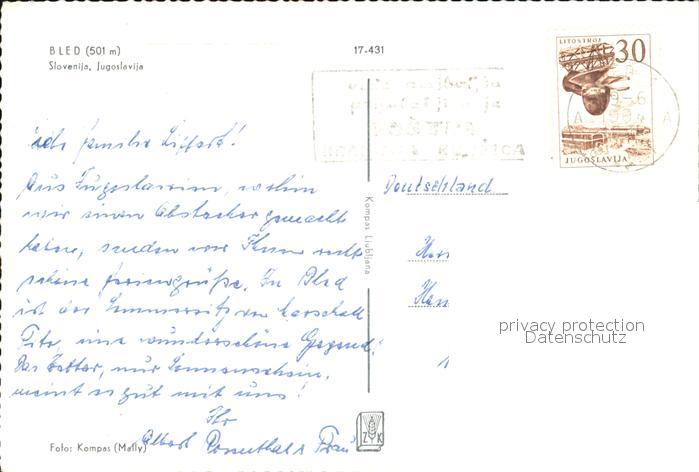 BLED (501 m)
Slovenija, Jugoslavija
17-431
LITOSTROJ
30
JUGOSLAVIJA
A A
Familie
Aus Jugoslawien, wohin
wir einen Abstecher gemacht
haben, senden wir Ihnen recht
schöne Feriengrüße. In Bled
ist der Sommersitz von Marschall
Tito, eine wunderschöne Gegend.
Das Wetter, nur Sonnenschein,
meint es gut mit uns!
Ihr
Albert Rosenthal & Frau
Deutschland
Kompas Ljubljana
privacy protection
Datenschutz
Foto: Kompas (Mally)
Z K